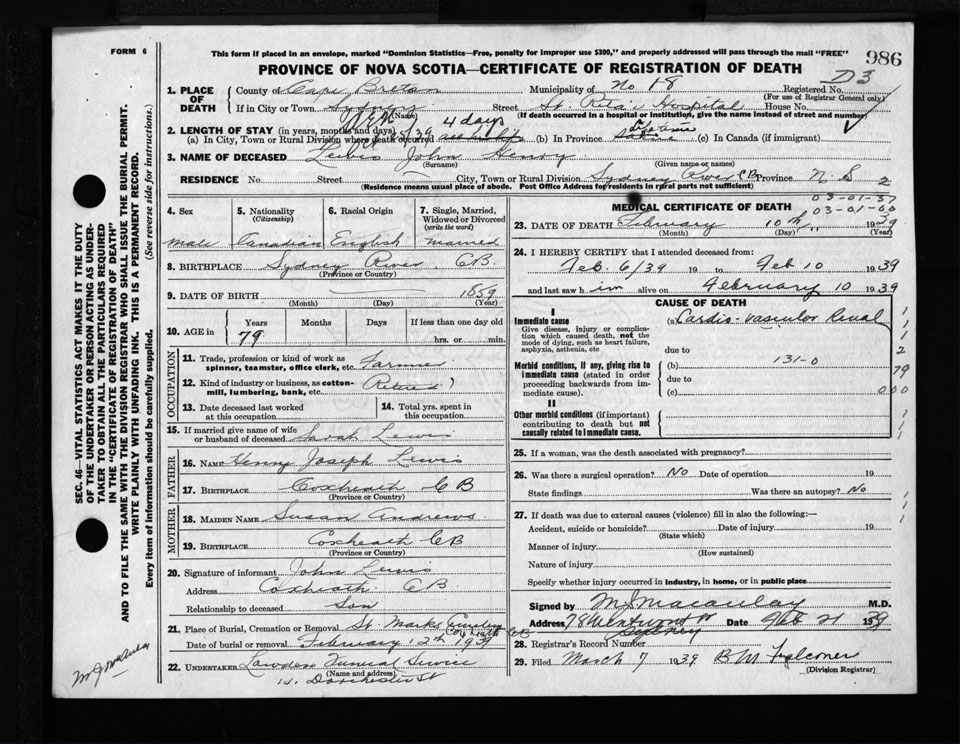 FORM 6
This form if placed in an envelope, marked "Dominion Statistics—Free, penalty for improper use $300," and properly addressed will pass through the mail "FREE"
986
PROVINCE OF NOVA SCOTIA—CERTIFICATE OF REGISTRATION OF DEATH
D3
1. PLACE OF DEATH County of Cape Breton Municipality of No 18 Registered No.
(For use of Registrar General only)
If in City or Town Sydney Street St. Rita's Hospital House No.
(Name) (If death occurred in a hospital or institution, give name instead of street and number)
2. LENGTH OF STAY (in years, months and days) 4 days
(a) In City, Town or Rural Division where death occurred (b) In Province Lifetime (c) In Canada (if immigrant)
3. NAME OF DECEASED Lewis John Henry
(Surname) (Given name or names)
RESIDENCE No. Street City, Town or Rural Division Sydney River CB Province N S 2
(Residence means usual place of abode. Post Office Address for residents in rural parts not sufficient)
4. Sex 5. Nationality (Citizenship) 6. Racial Origin 7. Single, Married, Widowed or Divorced (write the word)
male Canadian English married
8. BIRTHPLACE Sydney River, CB.
(Province or Country)
9. DATE OF BIRTH 1859
(Month) (Day) (Year)
10. AGE in Years Months Days If less than one day old
79 hrs. or min.
OCCUPATION
11. Trade, profession or kind of work as spinner, teamster, office clerk, etc. Farmer
12. Kind of industry or business, as cotton-mill, lumbering, bank, etc. (Retired)
13. Date deceased last worked at this occupation 14. Total yrs. spent in this occupation
15. If married give name of wife or husband of deceased Sarah Lewis
FATHER
16. NAME Henry Joseph Lewis
17. BIRTHPLACE Coxheath CB
(Province or Country)
MOTHER
18. MAIDEN NAME Susan Andrews
19. BIRTHPLACE Coxheath CB
(Province or Country)
20. Signature of informant John Lewis
Address Coxheath CB.
Relationship to deceased Son
21. Place of Burial, Cremation or Removal St. Marks Cemetery Coxheath CB
Date of burial or removal February 12th 1939
22. UNDERTAKER Lawden Funeral Service
(Name and address)
14. Dorchester St
MEDICAL CERTIFICATE OF DEATH
03-01-37
03-01-60
23. DATE OF DEATH February 10th 1939
(Month) (Day) (Year)
24. I HEREBY CERTIFY that I attended deceased from:
Feb. 6/39 19 to Feb 10 1939
and last saw him alive on February 10 1939
CAUSE OF DEATH
I
Immediate cause (a) Cardio-vascular Renal
Give disease, injury or complication which caused death, not the mode of dying, such as heart failure, asphyxia, asthenia, etc
due to
Morbid conditions, if any, giving rise to immediate cause (stated in order proceeding backwards from immediate cause).
(b) 131-0
due to
(c)
1
1
1
2
79
000
1
1
II
Other morbid conditions (if important) contributing to death but not causally related to immediate cause.
25. If a woman, was the death associated with pregnancy?
26. Was there a surgical operation? No Date of operation 19
State findings Was there an autopsy? No
27. If death was due to external causes (violence) fill in also the following:—
Accident, suicide or homicide? Date of injury 19
(State which)
Manner of injury
(How sustained)
Nature of injury
Specify whether injury occurred in industry, in home, or in public place
Signed by M J Macaulay M.D.
Address 78 Wentworth St Sydney Date Feb 21 1939
28. Registrar's Record Number
29. Filed March 7 1939 B M Falconer
(Division Registrar)
SEC. 46—VITAL STATISTICS ACT MAKES IT THE DUTY
OF THE UNDERTAKER OR PERSON ACTING AS UNDER-
TAKER TO OBTAIN ALL THE PARTICULARS REQUIRED
IN THE "CERTIFICATE OF REGISTRATION OF DEATH"
AND TO FILE THE SAME WITH THE DIVISION REGISTRAR WHO SHALL ISSUE THE BURIAL PERMIT.
WRITE PLAINLY WITH UNFADING INK. THIS IS A PERMANENT RECORD.
Every item of information should be carefully supplied. (See reverse side for instructions.)